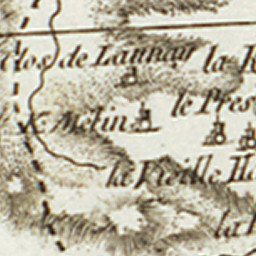 Clos de Launay
la
le Pres
K. Melin
la Vieille
la